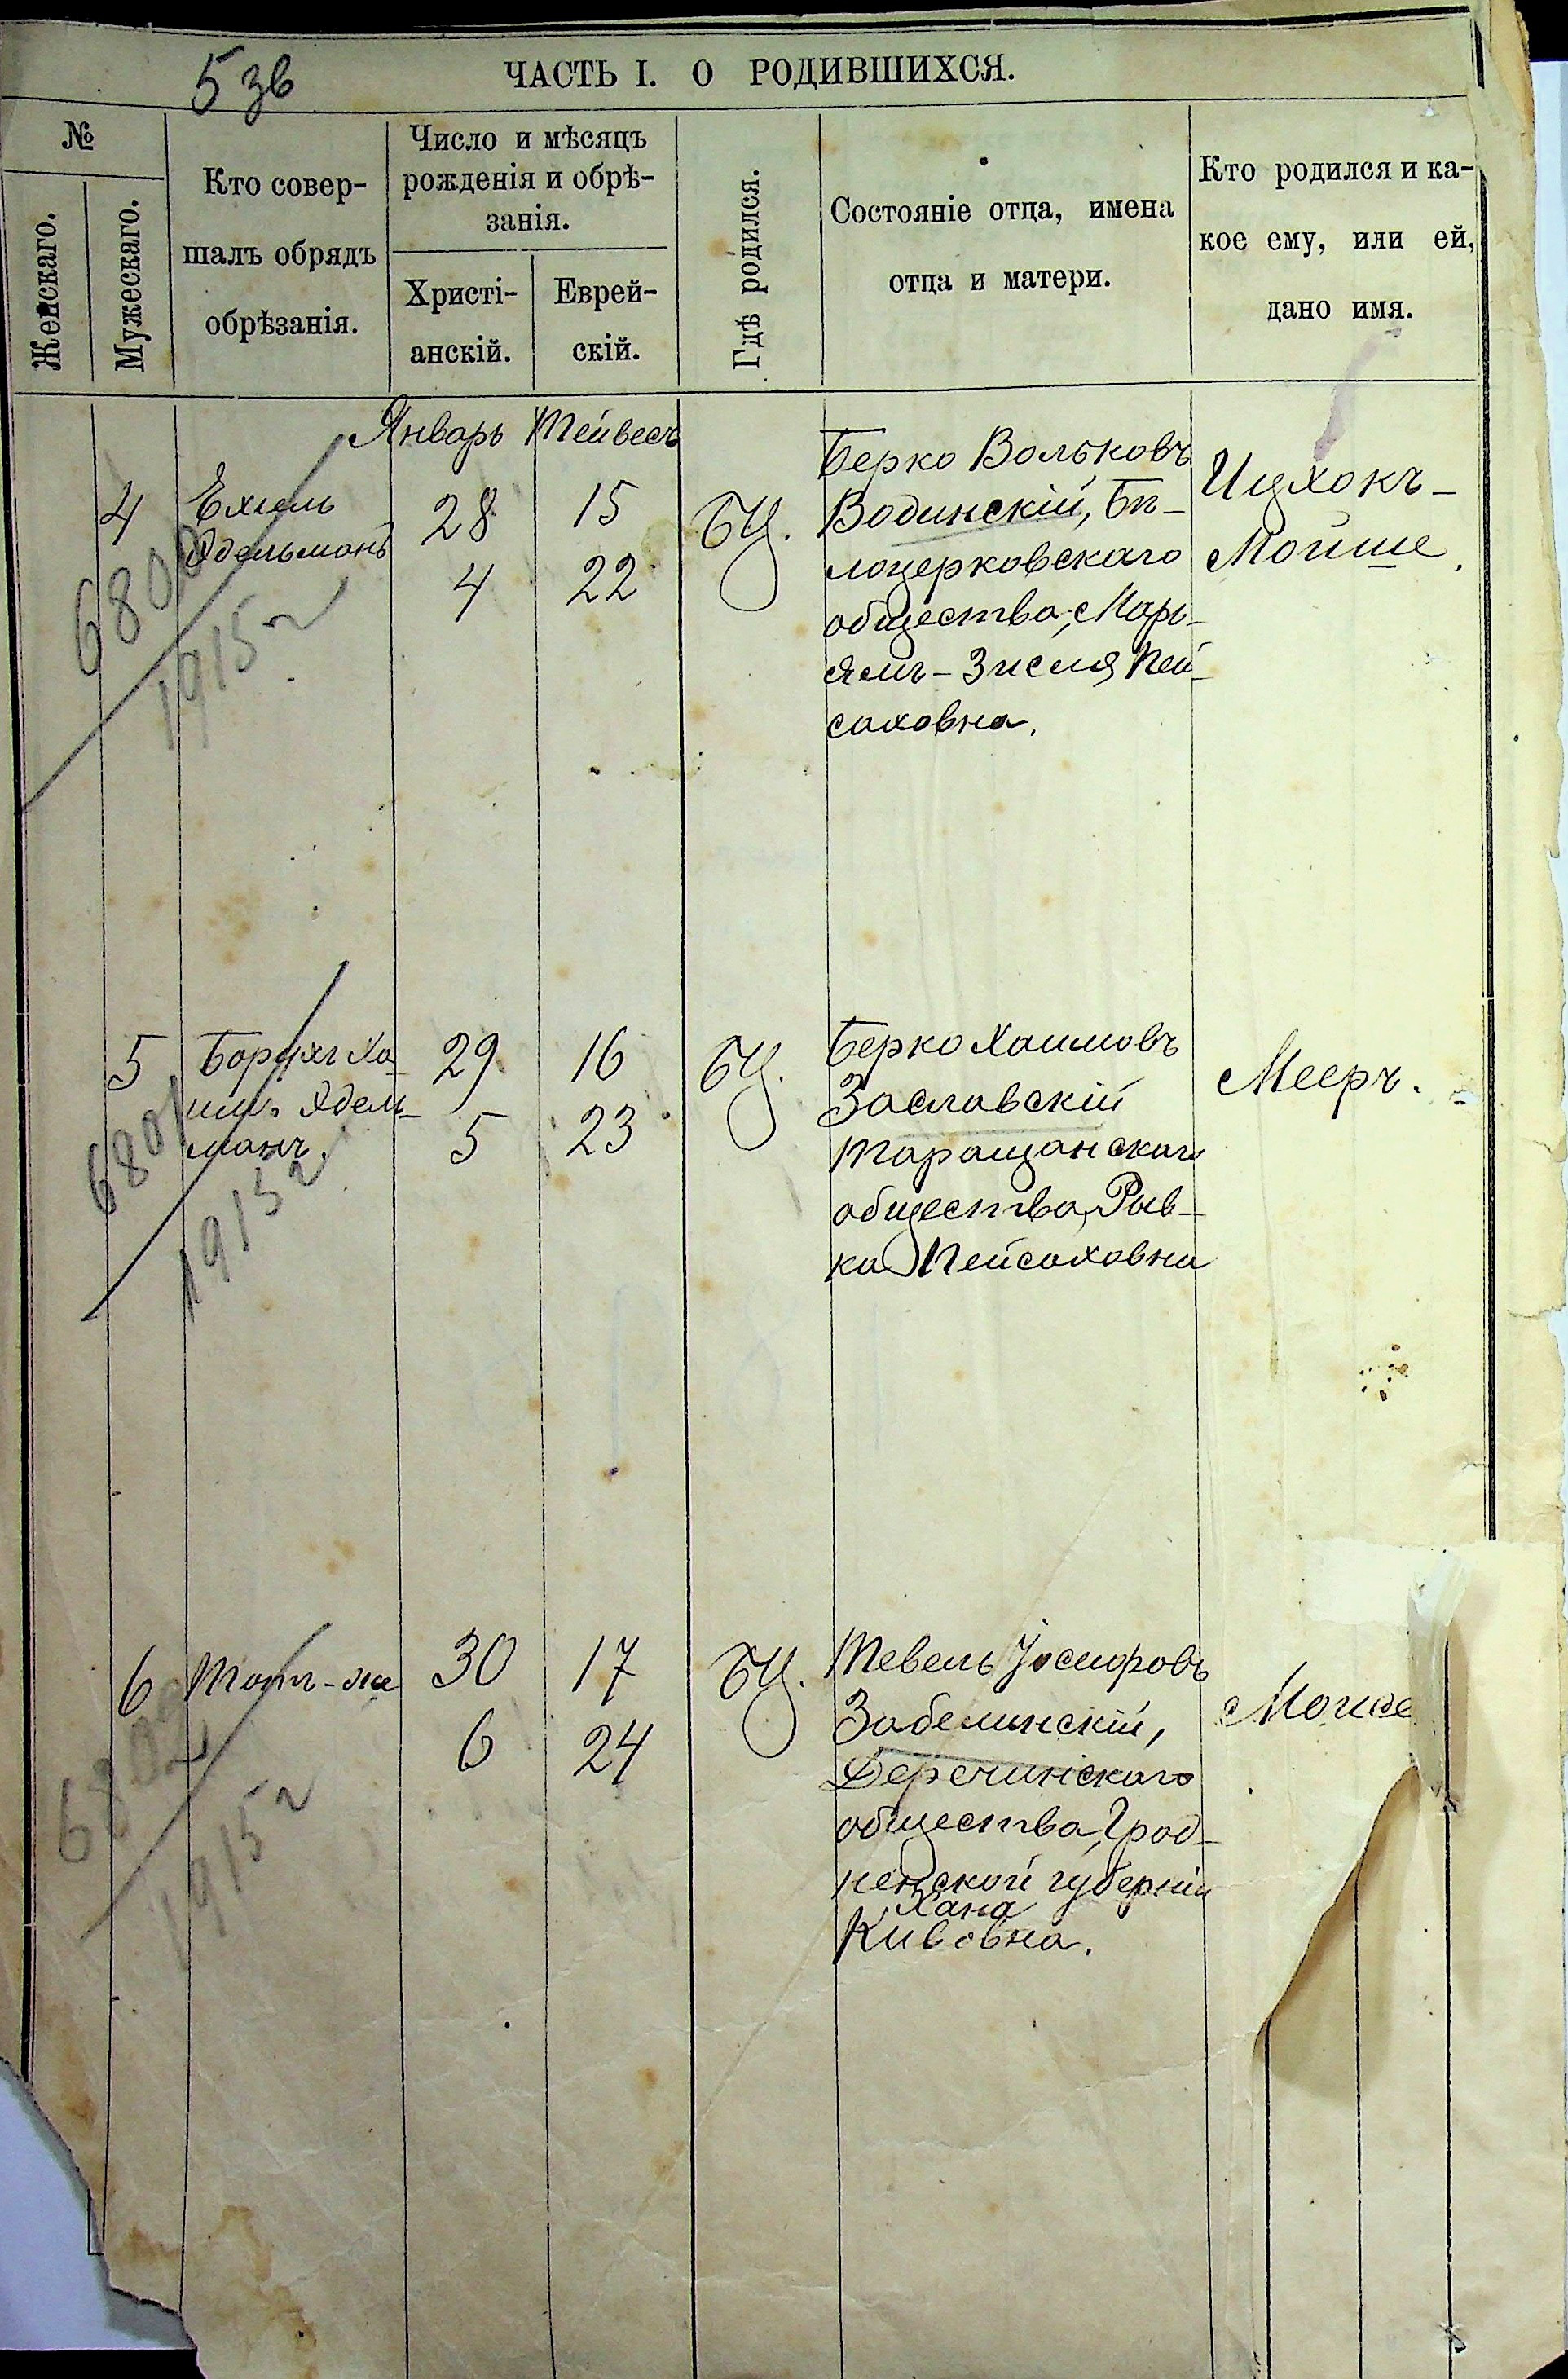 5 зв
ЧАСТЬ I. О РОДИВШИХСЯ.
№
Женскаго.
Мужескаго.
Кто совер-
шалъ обрядъ
обрѣзанія.
Число и мѣсяцъ
рожденія и обрѣ-
занія.
Христі-
анскій.
Еврей-
скій.
Гдѣ родился.
Состояніе отца, имена
отца и матери.
Кто родился и ка-
кое ему, или ей,
дано имя.
Январь Тейвесъ
4
Ехиль
Эдельманъ
28
4
15
22
БЦ.
Берко Вольковъ
Водинскій, Бѣ-
лоцерковскаго
общества, Марь-
ямъ-Зисля Пей-
саховна.
Ицхокъ-
Мойше.
6800
1915
5
Борухъ Ха-
имъ Эдель-
манъ.
29
5
16
23
БЦ.
Берко Хаимовъ
Заславскій
Таращанскаго
общества, Рив-
ка Пейсаховна
Мееръ.
6801
1915
6
Тотъ-же
30
6
17
24
БЦ.
Тевель Іосифовъ
Забелинскій,
Деречинскаго
общества, Грод-
ненской губерніи
Хана
Кивовна.
6802
1915